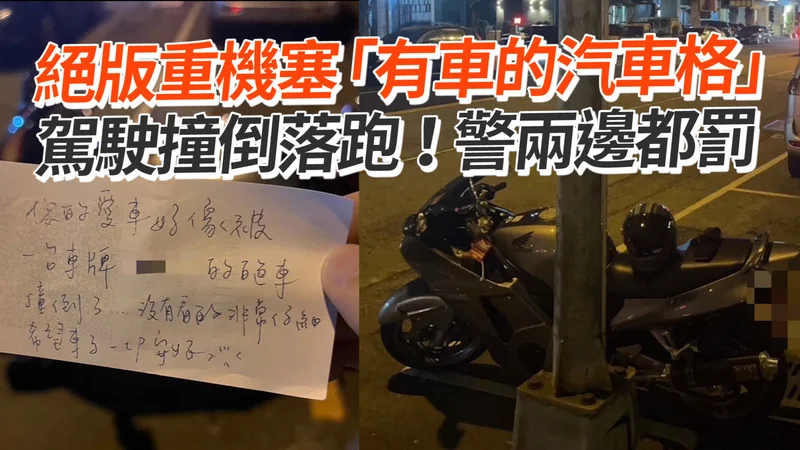 絕版重機塞「有車的汽車格」
駕駛撞倒落跑！警兩邊都罰
你的愛車好像被
一台車牌 的
撞倒了...沒有看的非常仔細
希望車子一切安好